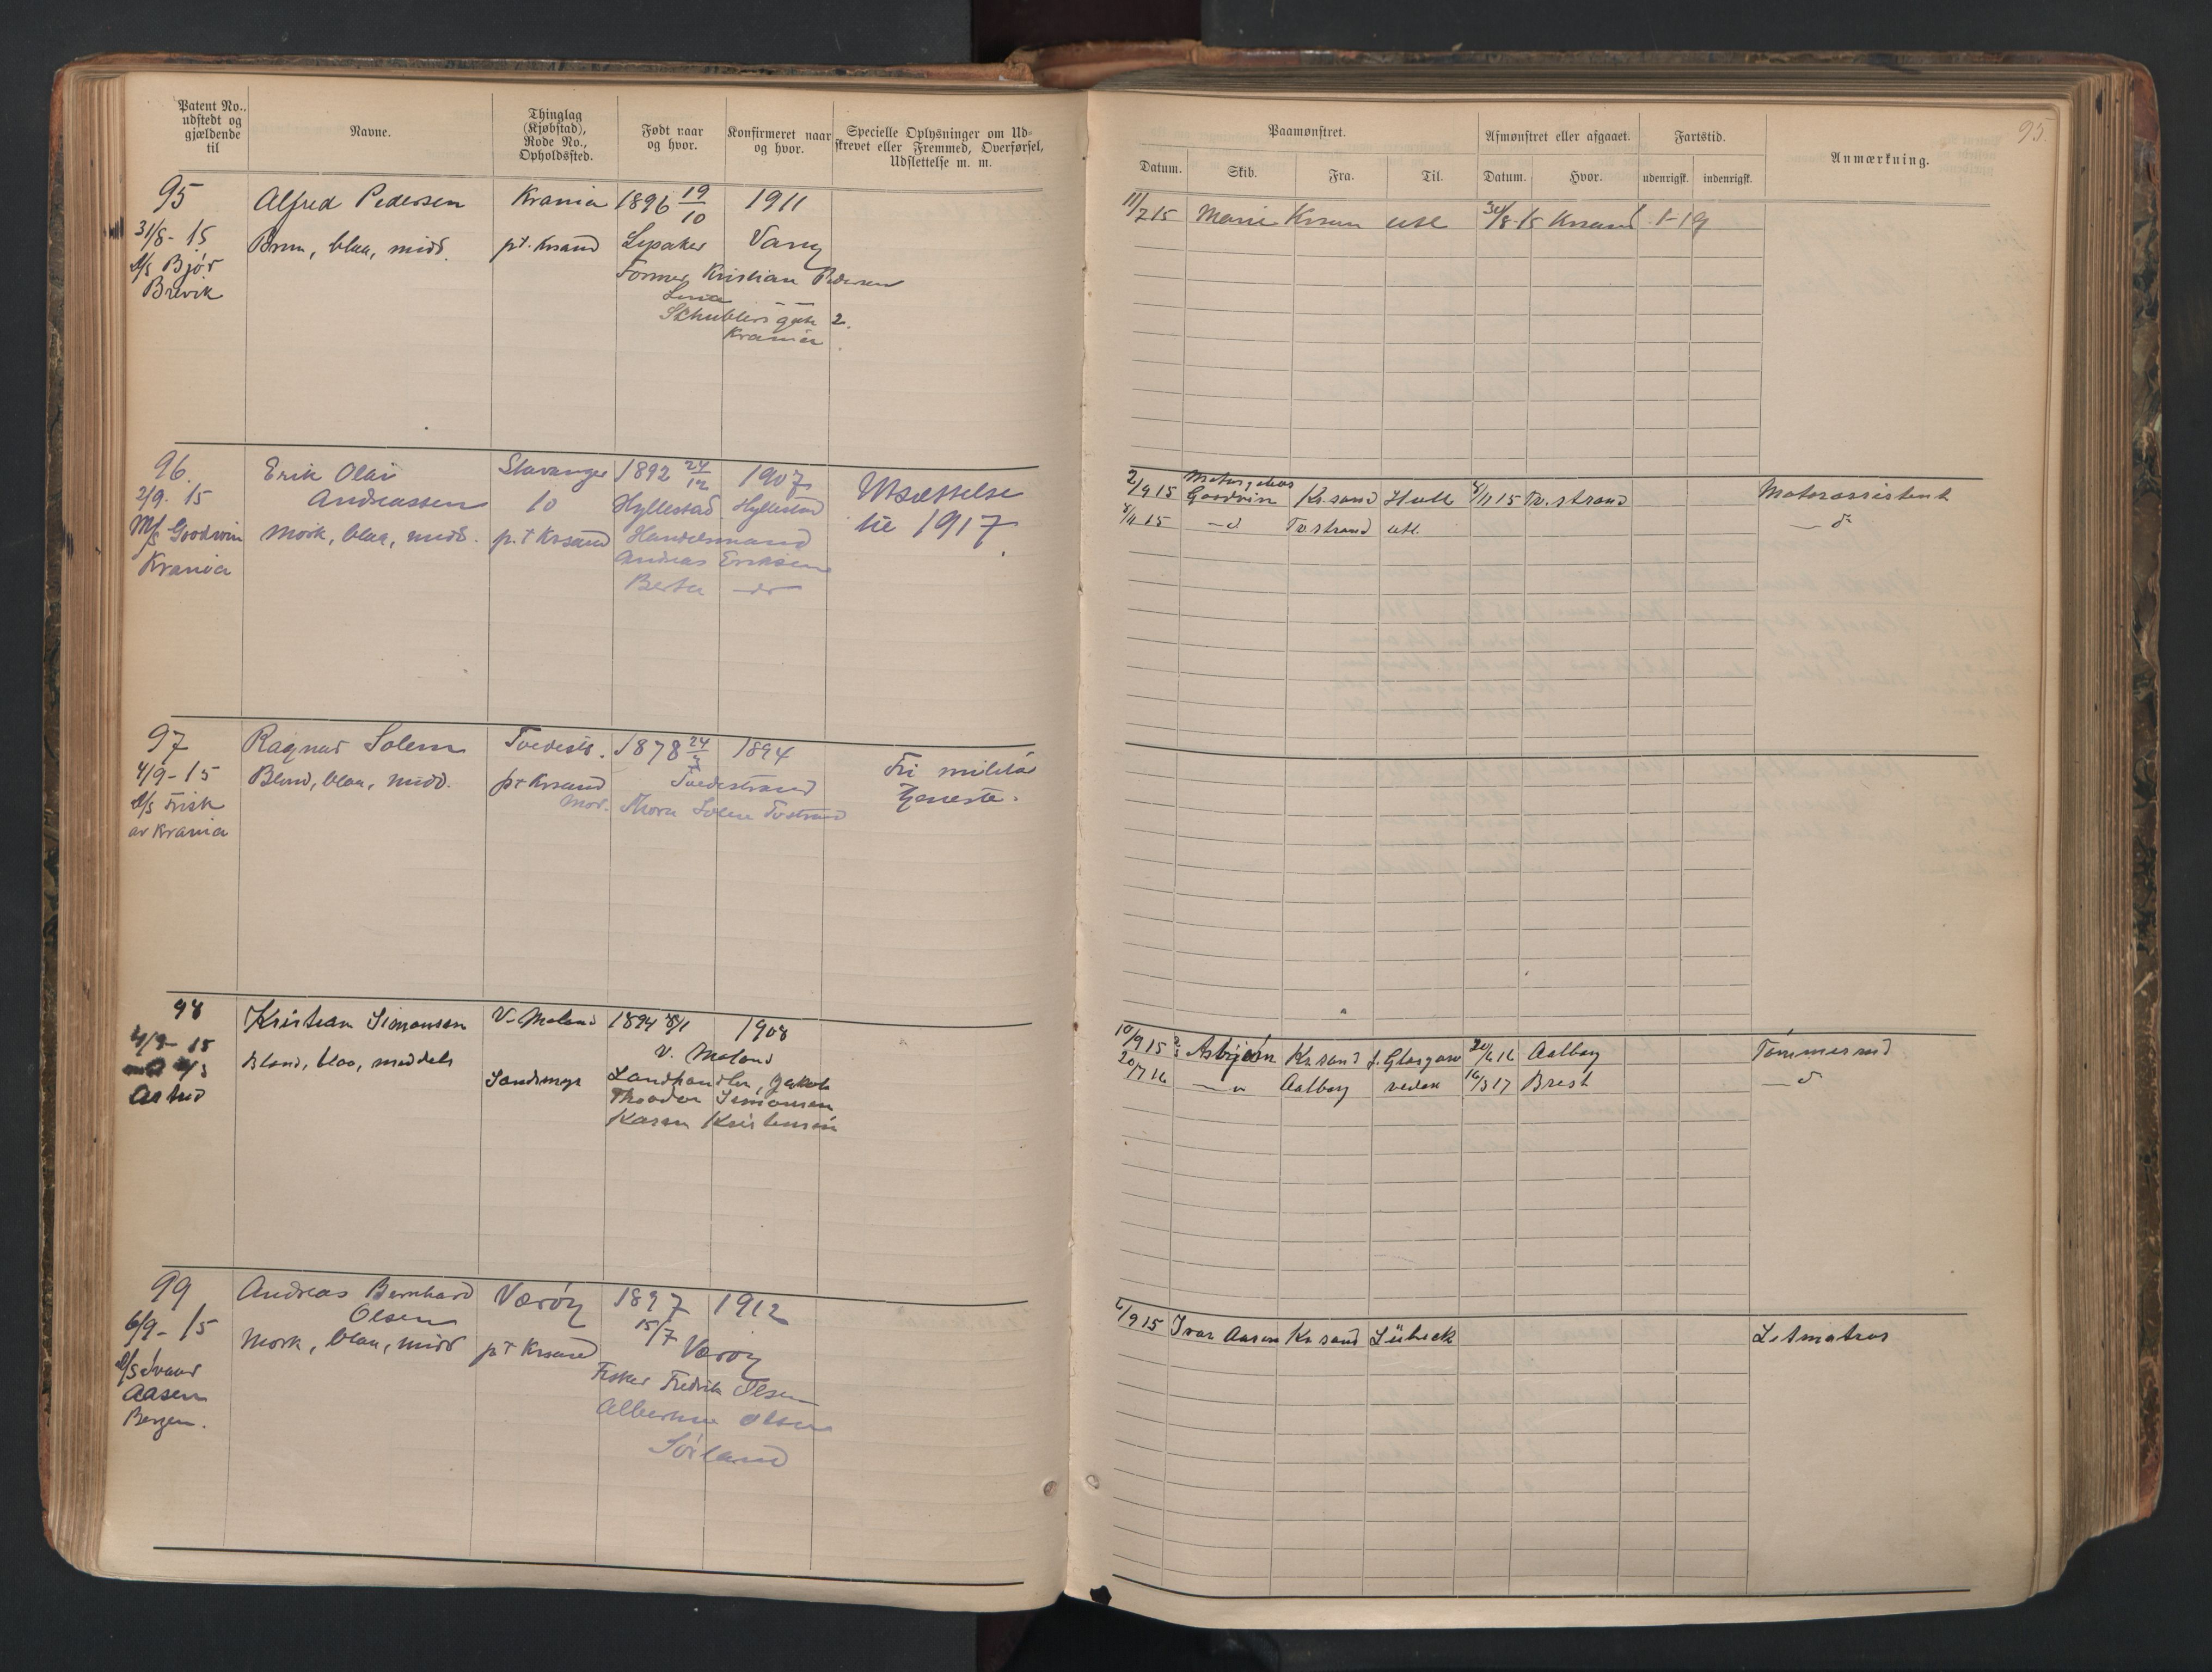 Patent No.,
udstedt og
gjældende
til
Navne.
Thinglag
(Kjøbstad),
Rode No.,
Opholdssted.
Født naar
og hvor.
Konfirmeret naar
og hvor.
Specielle Oplysninger om Ud-
skrevet eller Fremmed, Overførsel,
Udslettelse m. m.
95
31/8-15
D/s Bjør
Brevik
Alfred Pedersen
Brun, blaa, midd.
Krania
pt. Krsand
1896 19/10
1911
Lysaker Vang
Former Kristian Pedersen
Lina — —
Schüblers gate 2.
Krania.
96.
2/9. 15
M/s Goodwin
Krania
Erik Olai
Andreassen
Mørk, blaa, midd.
Stavanger
10
p.t Krsand
1892 24/12
1907
Hyllestad Hyllestad
Handelsmand
Andreas Eriksen
Berta —do
Utsættelse
til 1917.
97
4/9-15
D/s Frisk
av Krania
Ragnar Solem
Blond, blaa, midd.
Tvedests.
pt Krsand
1878 24/3
1894
Tvedestrand
Mor. Thora Solem Tvestrand
Fri militær
tjeneste.
98
4/9-15
Astrid
Kristian Simonsen
Blond, blaa, middels
V. Moland
Sandmyr
1894 8/1
1908
V. Moland
Landhandler, Jakob
Theodor Simonsen
Karen Kristensen
99
6/9-15
D/s Ivaar
Aasen
Bergen.
Andreas Bernhard
Olsen
Mørk, blaa, midd
Værøy
pt Krsand
1897
1912
15/7 Værøy
Fisker Fredrik Olsen
Albertine Olsen
Sørland
95.
Paamønstret.
Afmønstret eller afgaaet.
Fartstid.
Anmærkning.
Datum.
Skib.
Fra.
Til.
Datum.
Hvor.
udenrigsk.
indenrigsk.
11/7 15 Marie Krsan utl 30/8-15 Krsand 1-19
2/9 15 Motorgaleas Goodwin Kr.sand Hull 8/11 15 Tv.strand Motorassistent
8/11 15 —d Tvstrand utl. —d
10/9 15 D/s Asbjørn Kr.sand f. Glasgow 20/6 16 Aalborg Tømmermd
20/7 16 —u Aalborg vedek 16/3 17 Brest —d
6/9 15 Ivar Aasen Kr.sand Lübeck Letmatros